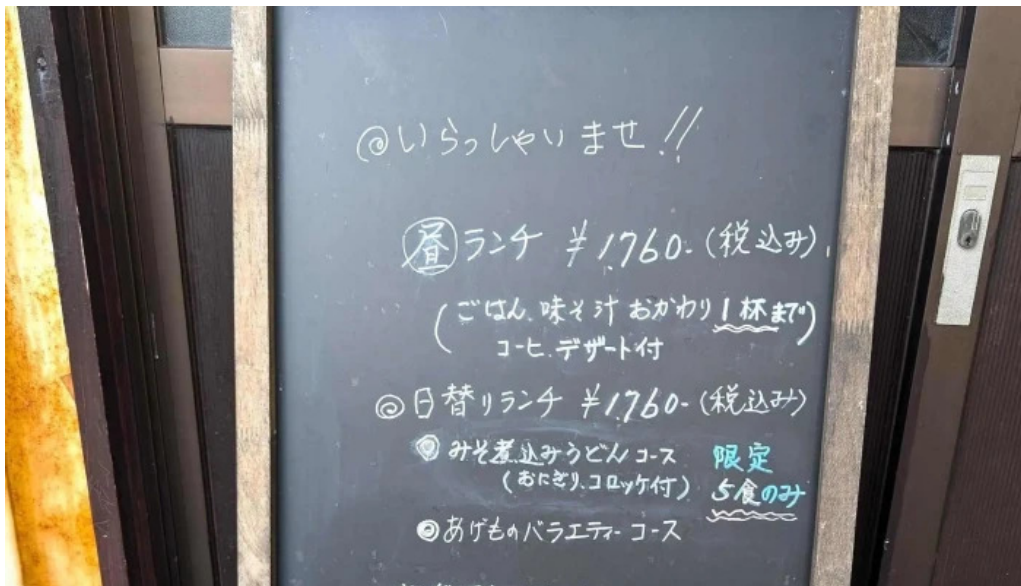 ◎いらっしゃいませ!!
昼ランチ ¥1,760-(税込み)
(ごはん、味そ汁 おかわり1杯まで)
コーヒ、デザート付
◎日替りランチ ¥1,760-(税込み)
◎みそ煮込みうどんコース 限定
(おにぎり、コロッケ付) 5食のみ
◎あげものバラエティーコース